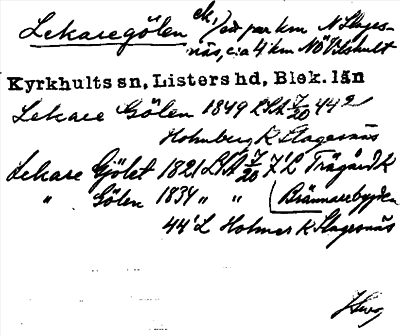 Lekaregölen ek, / ett par km N Slages-
näs, c:a 4 km NÖ Vilshult
Kyrkhults sn, Listers hd, Blek. län
Lekare Gölen 1849 LSA 44
Holmberg K Slagesnäs
Lekare Gjölet 1821 LSA Trägård K
" Gölen 1834 " " Brännarebygden
44 L Holmer K Slagesnäs